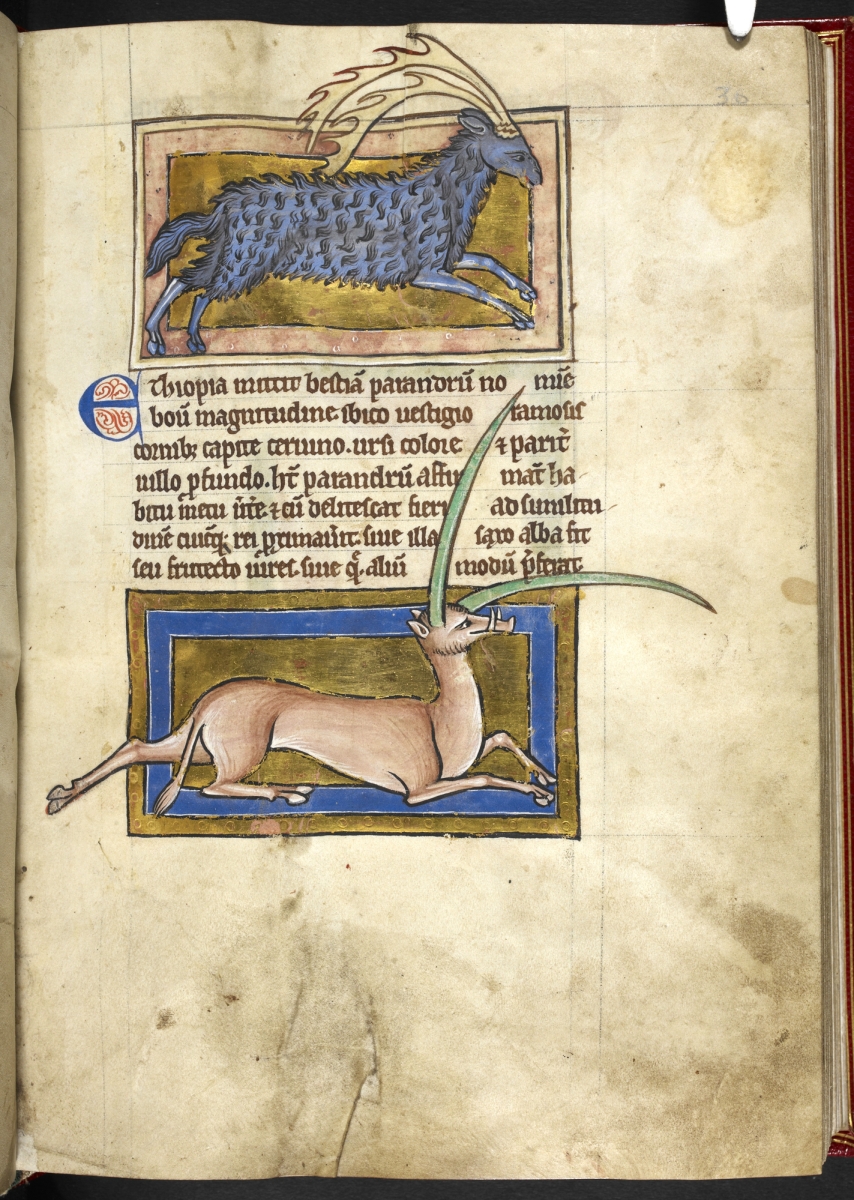 30
Ethiopia mittit bestiā parandrū no mīe
boū magnitudine ibico uestigio ramosis
cornibꝫ capite ceruino. ursi colore ⁊ parit᷑
uillo ꝓfundo. ht̄ parandrū affir mat̄ ha
bitū metu ut̄e ⁊ cū delitescat fieri ad similitu
dinē cuicūqꝫ rei ꝓximauit. siue illa saxo alba sit
seu frutecto uiret. siue q̄ aliū modū p̄ferat.